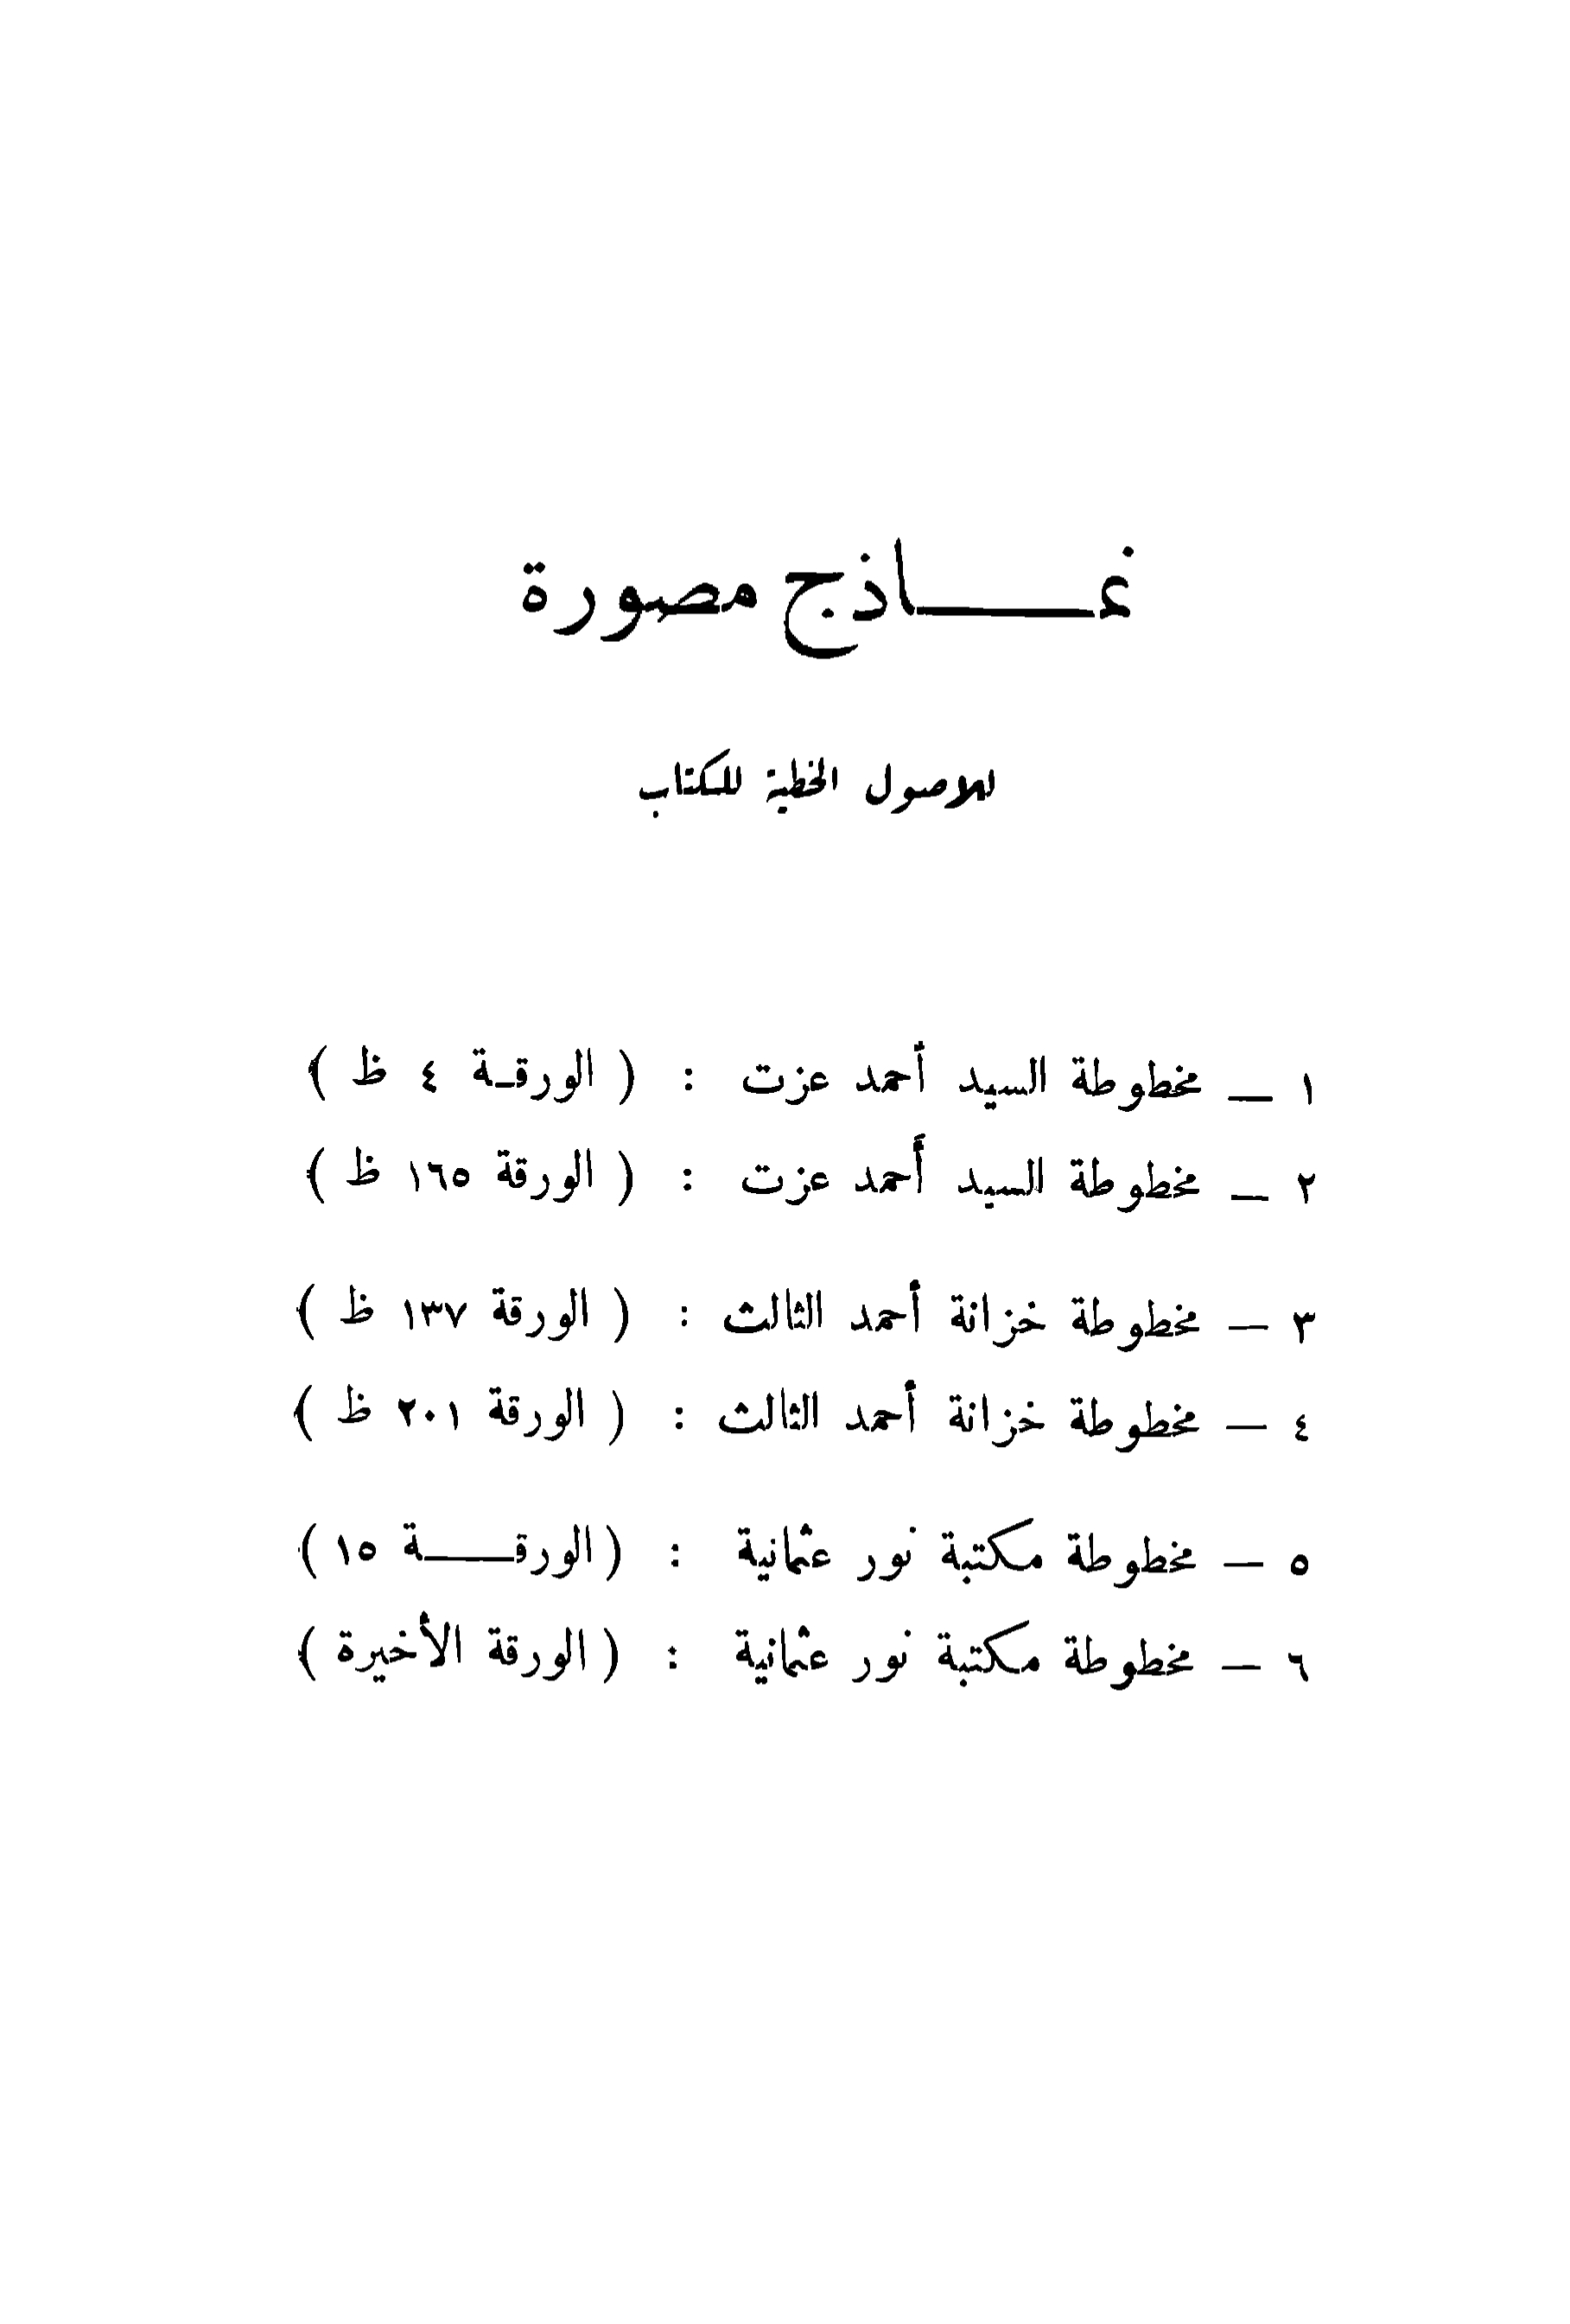 نمـــاذج مصورة
للاصول الخطية للكتاب
١ — مخطوطة السيد أحمد عزت : ( الورقـة ٤ ظ )
٢ — مخطوطة السيد أحمد عزت : ( الورقة ١٦٥ ظ )
٣ — مخطوطة خزانة أحمد الثالث : ( الورقة ١٣٧ ظ )
٤ — مخطوطة خزانة أحمد الثالث : ( الورقة ٢٠١ ظ )
٥ — مخطوطة مكتبة نور عثمانية : ( الورقـــة ١٥ )
٦ — مخطوطة مكتبة نور عثمانية : ( الورقة الأخيرة )